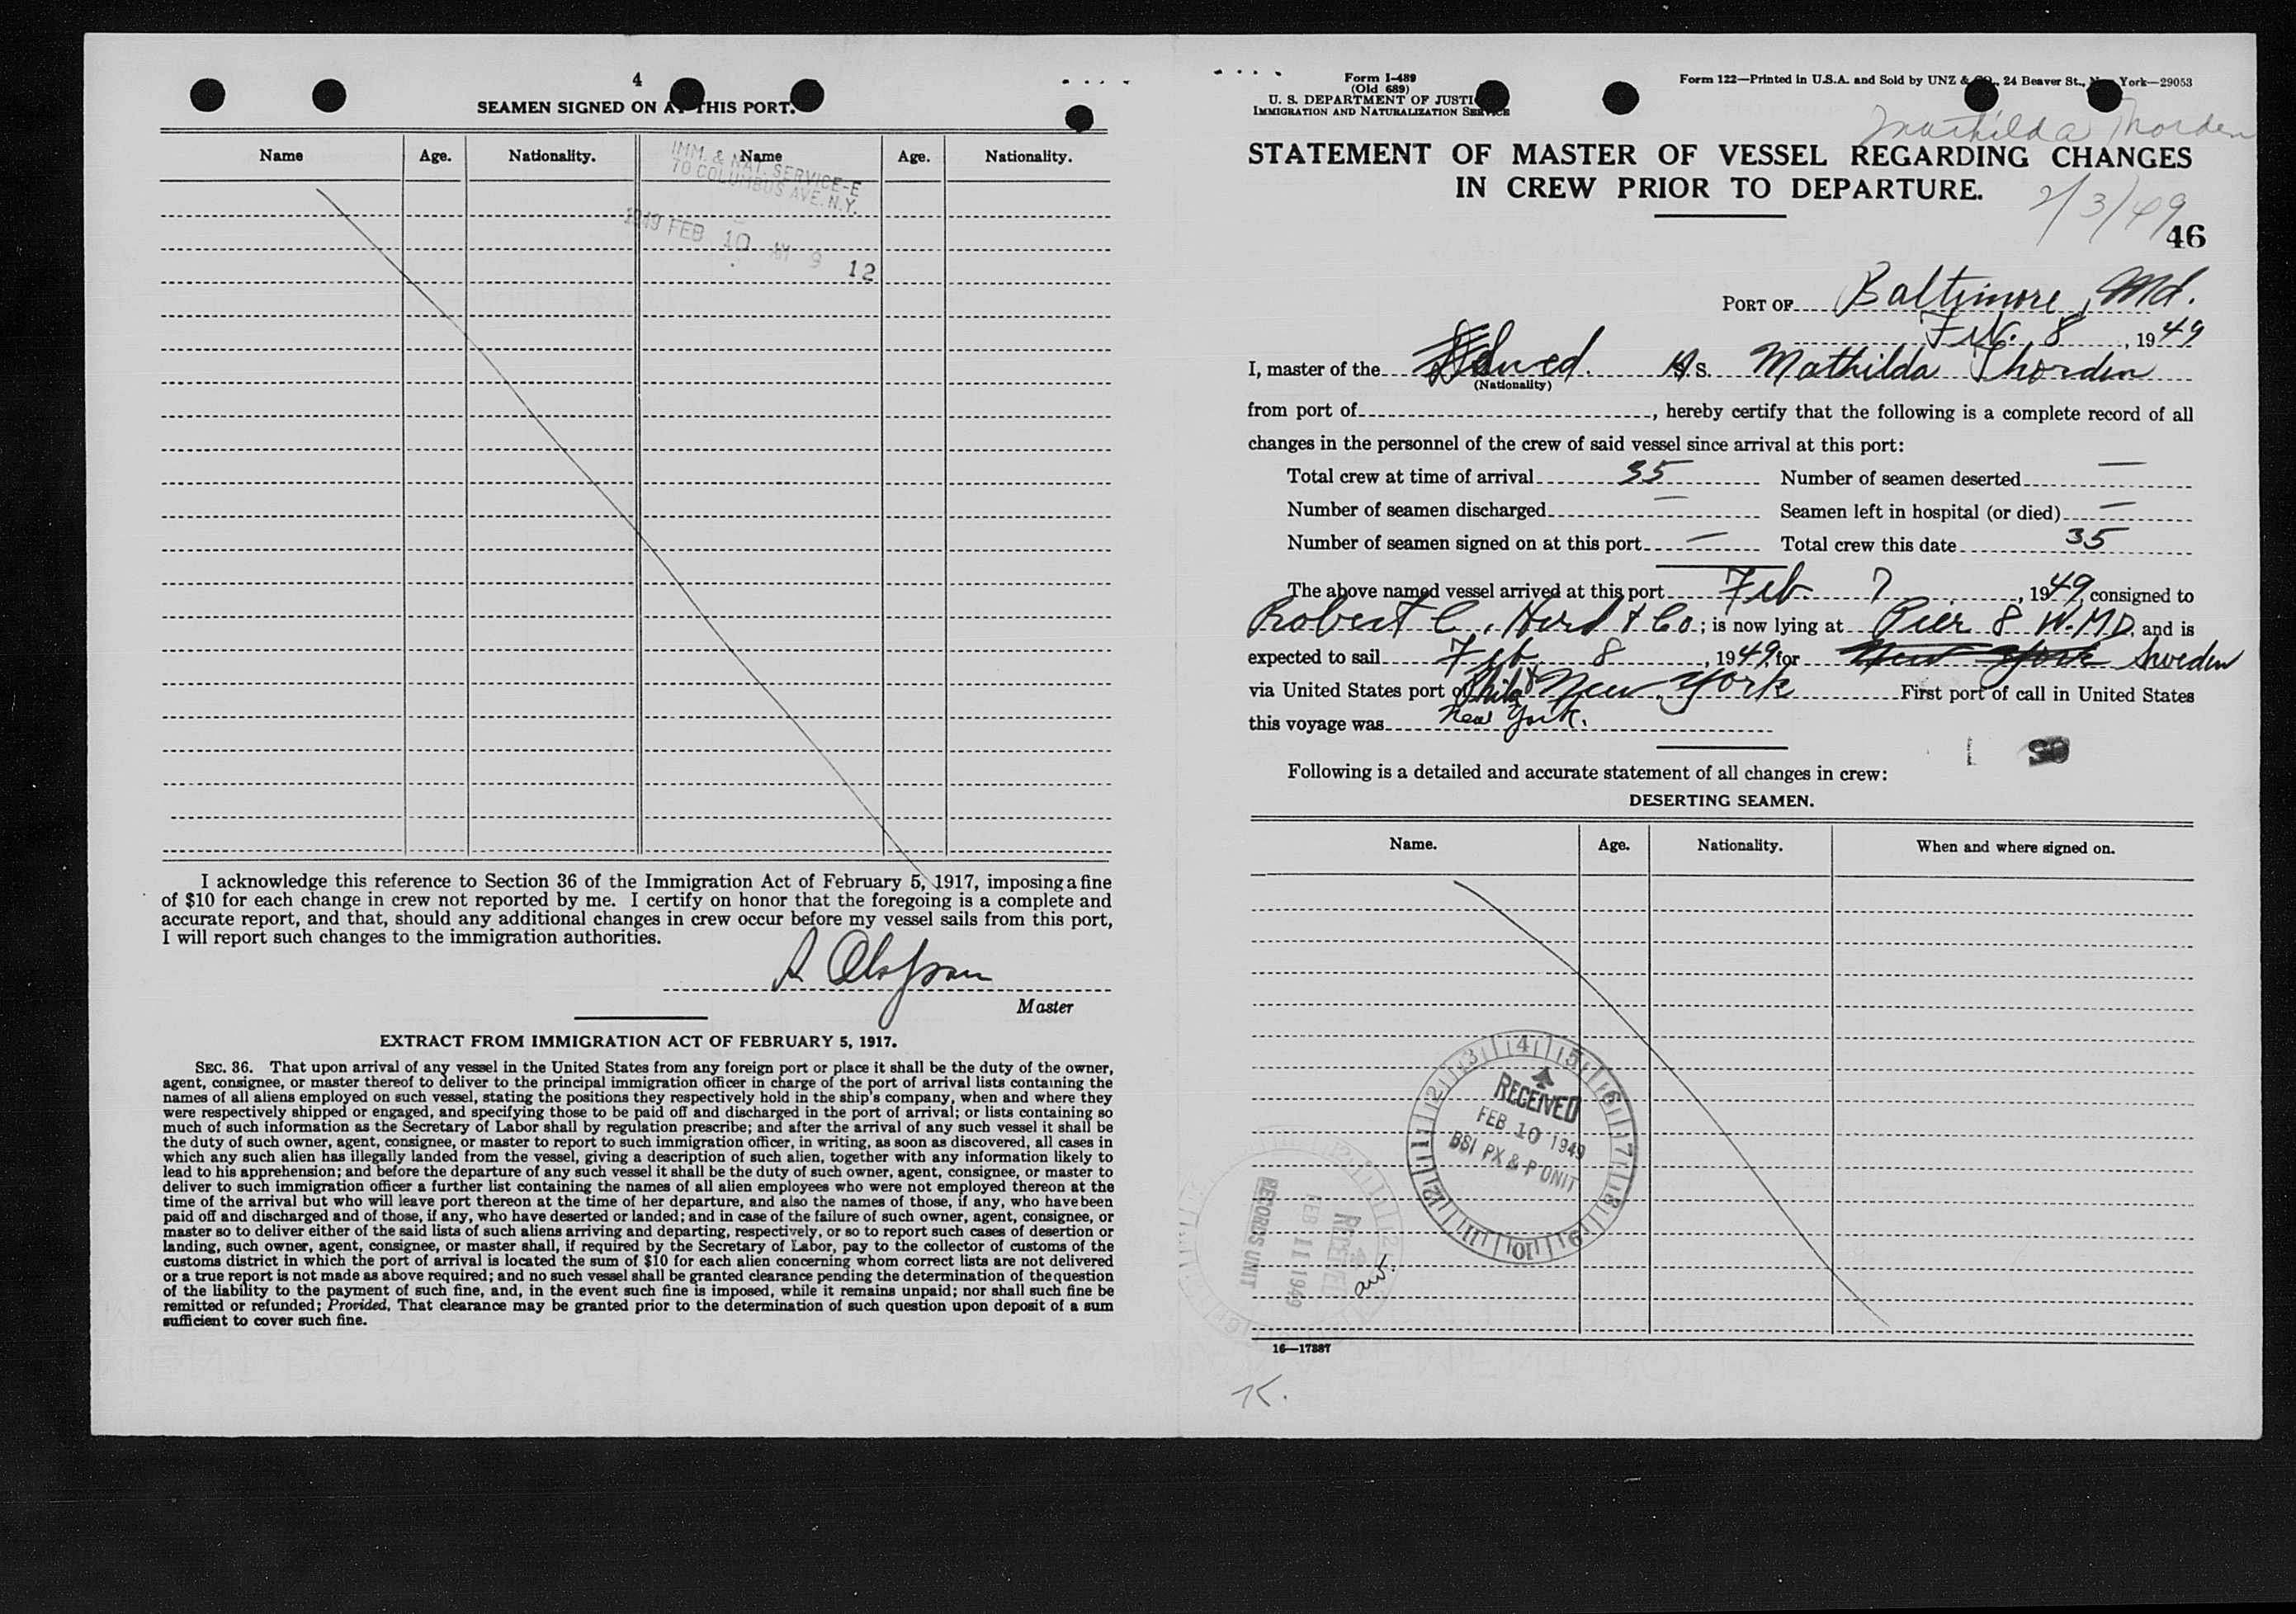 4
SEAMEN SIGNED ON AT THIS PORT.
Name Age. Nationality. Name Age. Nationality.
IMM. & NAT. SERVICE-E
70 COLUMBUS AVE. N.Y.
1949 FEB 10 AM 9 12
I acknowledge this reference to Section 36 of the Immigration Act of February 5, 1917, imposing a fine
of $10 for each change in crew not reported by me. I certify on honor that the foregoing is a complete and
accurate report, and that, should any additional changes in crew occur before my vessel sails from this port,
I will report such changes to the immigration authorities.
A Olofsson
Master
EXTRACT FROM IMMIGRATION ACT OF FEBRUARY 5, 1917.
SEC. 36. That upon arrival of any vessel in the United States from any foreign port or place it shall be the duty of the owner,
agent, consignee, or master thereof to deliver to the principal immigration officer in charge of the port of arrival lists containing the
names of all aliens employed on such vessel, stating the positions they respectively hold in the ship's company, when and where they
were respectively shipped or engaged, and specifying those to be paid off and discharged in the port of arrival; or lists containing so
much of such information as the Secretary of Labor shall by regulation prescribe; and after the arrival of any such vessel it shall be
the duty of such owner, agent, consignee, or master to report to such immigration officer, in writing, as soon as discovered, all cases in
which any such alien has illegally landed from the vessel, giving a description of such alien, together with any information likely to
lead to his apprehension; and before the departure of any such vessel it shall be the duty of such owner, agent, consignee, or master to
deliver to such immigration officer a further list containing the names of all alien employees who were not employed thereon at the
time of the arrival but who will leave port thereon at the time of her departure, and also the names of those, if any, who have been
paid off and discharged and of those, if any, who have deserted or landed; and in case of the failure of such owner, agent, consignee, or
master so to deliver either of the said lists of such aliens arriving and departing, respectively, or so to report such cases of desertion or
landing, such owner, agent, consignee, or master shall, if required by the Secretary of Labor, pay to the collector of customs of the
customs district in which the port of arrival is located the sum of $10 for each alien concerning whom correct lists are not delivered
or a true report is not made as above required; and no such vessel shall be granted clearance pending the determination of the question
of the liability to the payment of such fine, and, in the event such fine is imposed, while it remains unpaid; nor shall such fine be
remitted or refunded; Provided, That clearance may be granted prior to the determination of such question upon deposit of a sum
sufficient to cover such fine.
Form I-489
(Old 689)
U. S. DEPARTMENT OF JUSTICE
IMMIGRATION AND NATURALIZATION SERVICE
Form 122—Printed in U.S.A. and Sold by UNZ & CO., 24 Beaver St., New York—29053
Mathilda Thorden
STATEMENT OF MASTER OF VESSEL REGARDING CHANGES
IN CREW PRIOR TO DEPARTURE.
2/3/49
46
PORT OF Baltimore, Md.
Feb. 8, 1949
I, master of the Swed. S. S. Mathilda Thorden
(Nationality)
from port of , hereby certify that the following is a complete record of all
changes in the personnel of the crew of said vessel since arrival at this port:
Total crew at time of arrival 35 Number of seamen deserted —
Number of seamen discharged — Seamen left in hospital (or died) —
Number of seamen signed on at this port — Total crew this date 35
The above named vessel arrived at this port Feb 7, 1949, consigned to
Robert C. Herd & Co; is now lying at Pier 8 W.MD. and is
expected to sail Feb 8, 1949, for New York Sweden
via United States port of Phila & New York First port of call in United States
this voyage was New York.
Following is a detailed and accurate statement of all changes in crew:
DESERTING SEAMEN.
Name. Age. Nationality. When and where signed on.
RECEIVED
FEB 10 1949
BSI PX & P UNIT
RECEIVED
FEB 11 1949
RECORDS UNIT
16—17387
K.